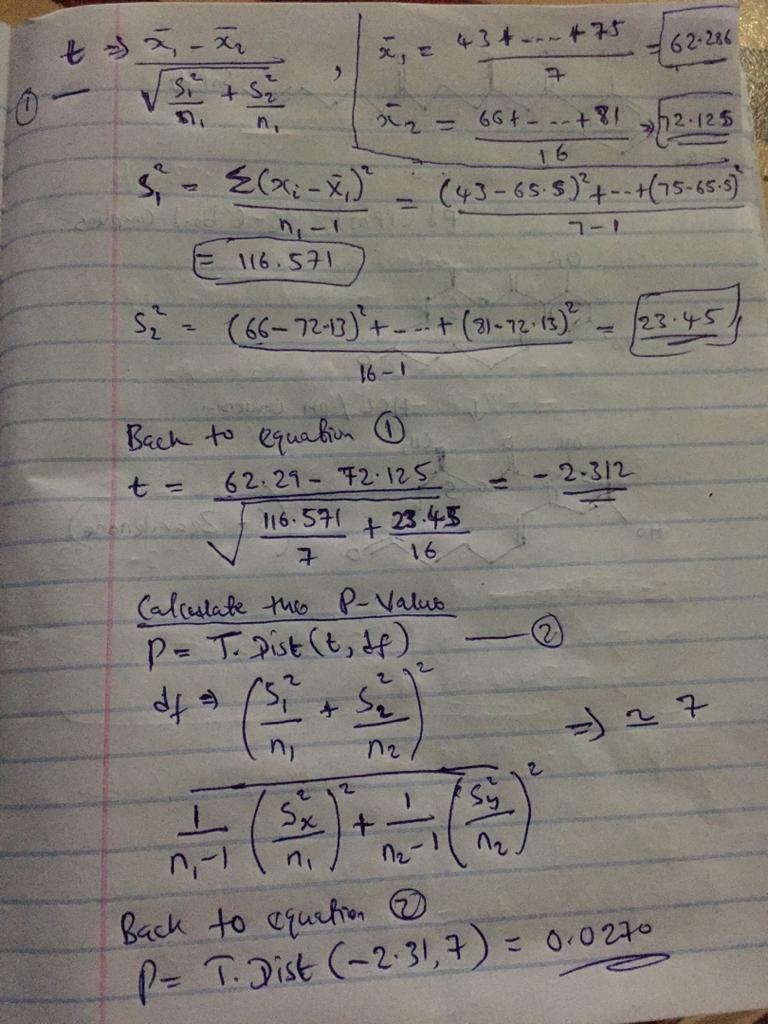 ① — t ⇒ (x̄₁ - x̄₂) / √(S₁²/n₁ + S₂²/n₁) ,
x̄₁ = (43 + --- + 75) / 7 = 62.286
x̄₂ = (66 + --- + 81) / 16 ⇒ 72.125
S₁² = Σ(xᵢ - x̄₁)² / (n₁ - 1) = ((43 - 65.5)² + --- + (75-65.5)²) / (7-1)
= 116.571
S₂² = ((66 - 72.13)² + --- + (81-72.13)²) / (16-1) = 23.45
Back to equation ①
t = (62.29 - 72.125) / √(116.571/7 + 23.45/16) = -2.312
Calculate the P-Value
P = T.Dist(t, df) — ②
df ⇒ (S₁²/n₁ + S₂²/n₂)² / (1/(n₁-1) (Sx²/n₁)² + 1/(n₂-1) (Sy²/n₂)²) ⇒ ≃ 7
Back to equation ②
P = T.Dist(-2.31, 7) = 0.0270